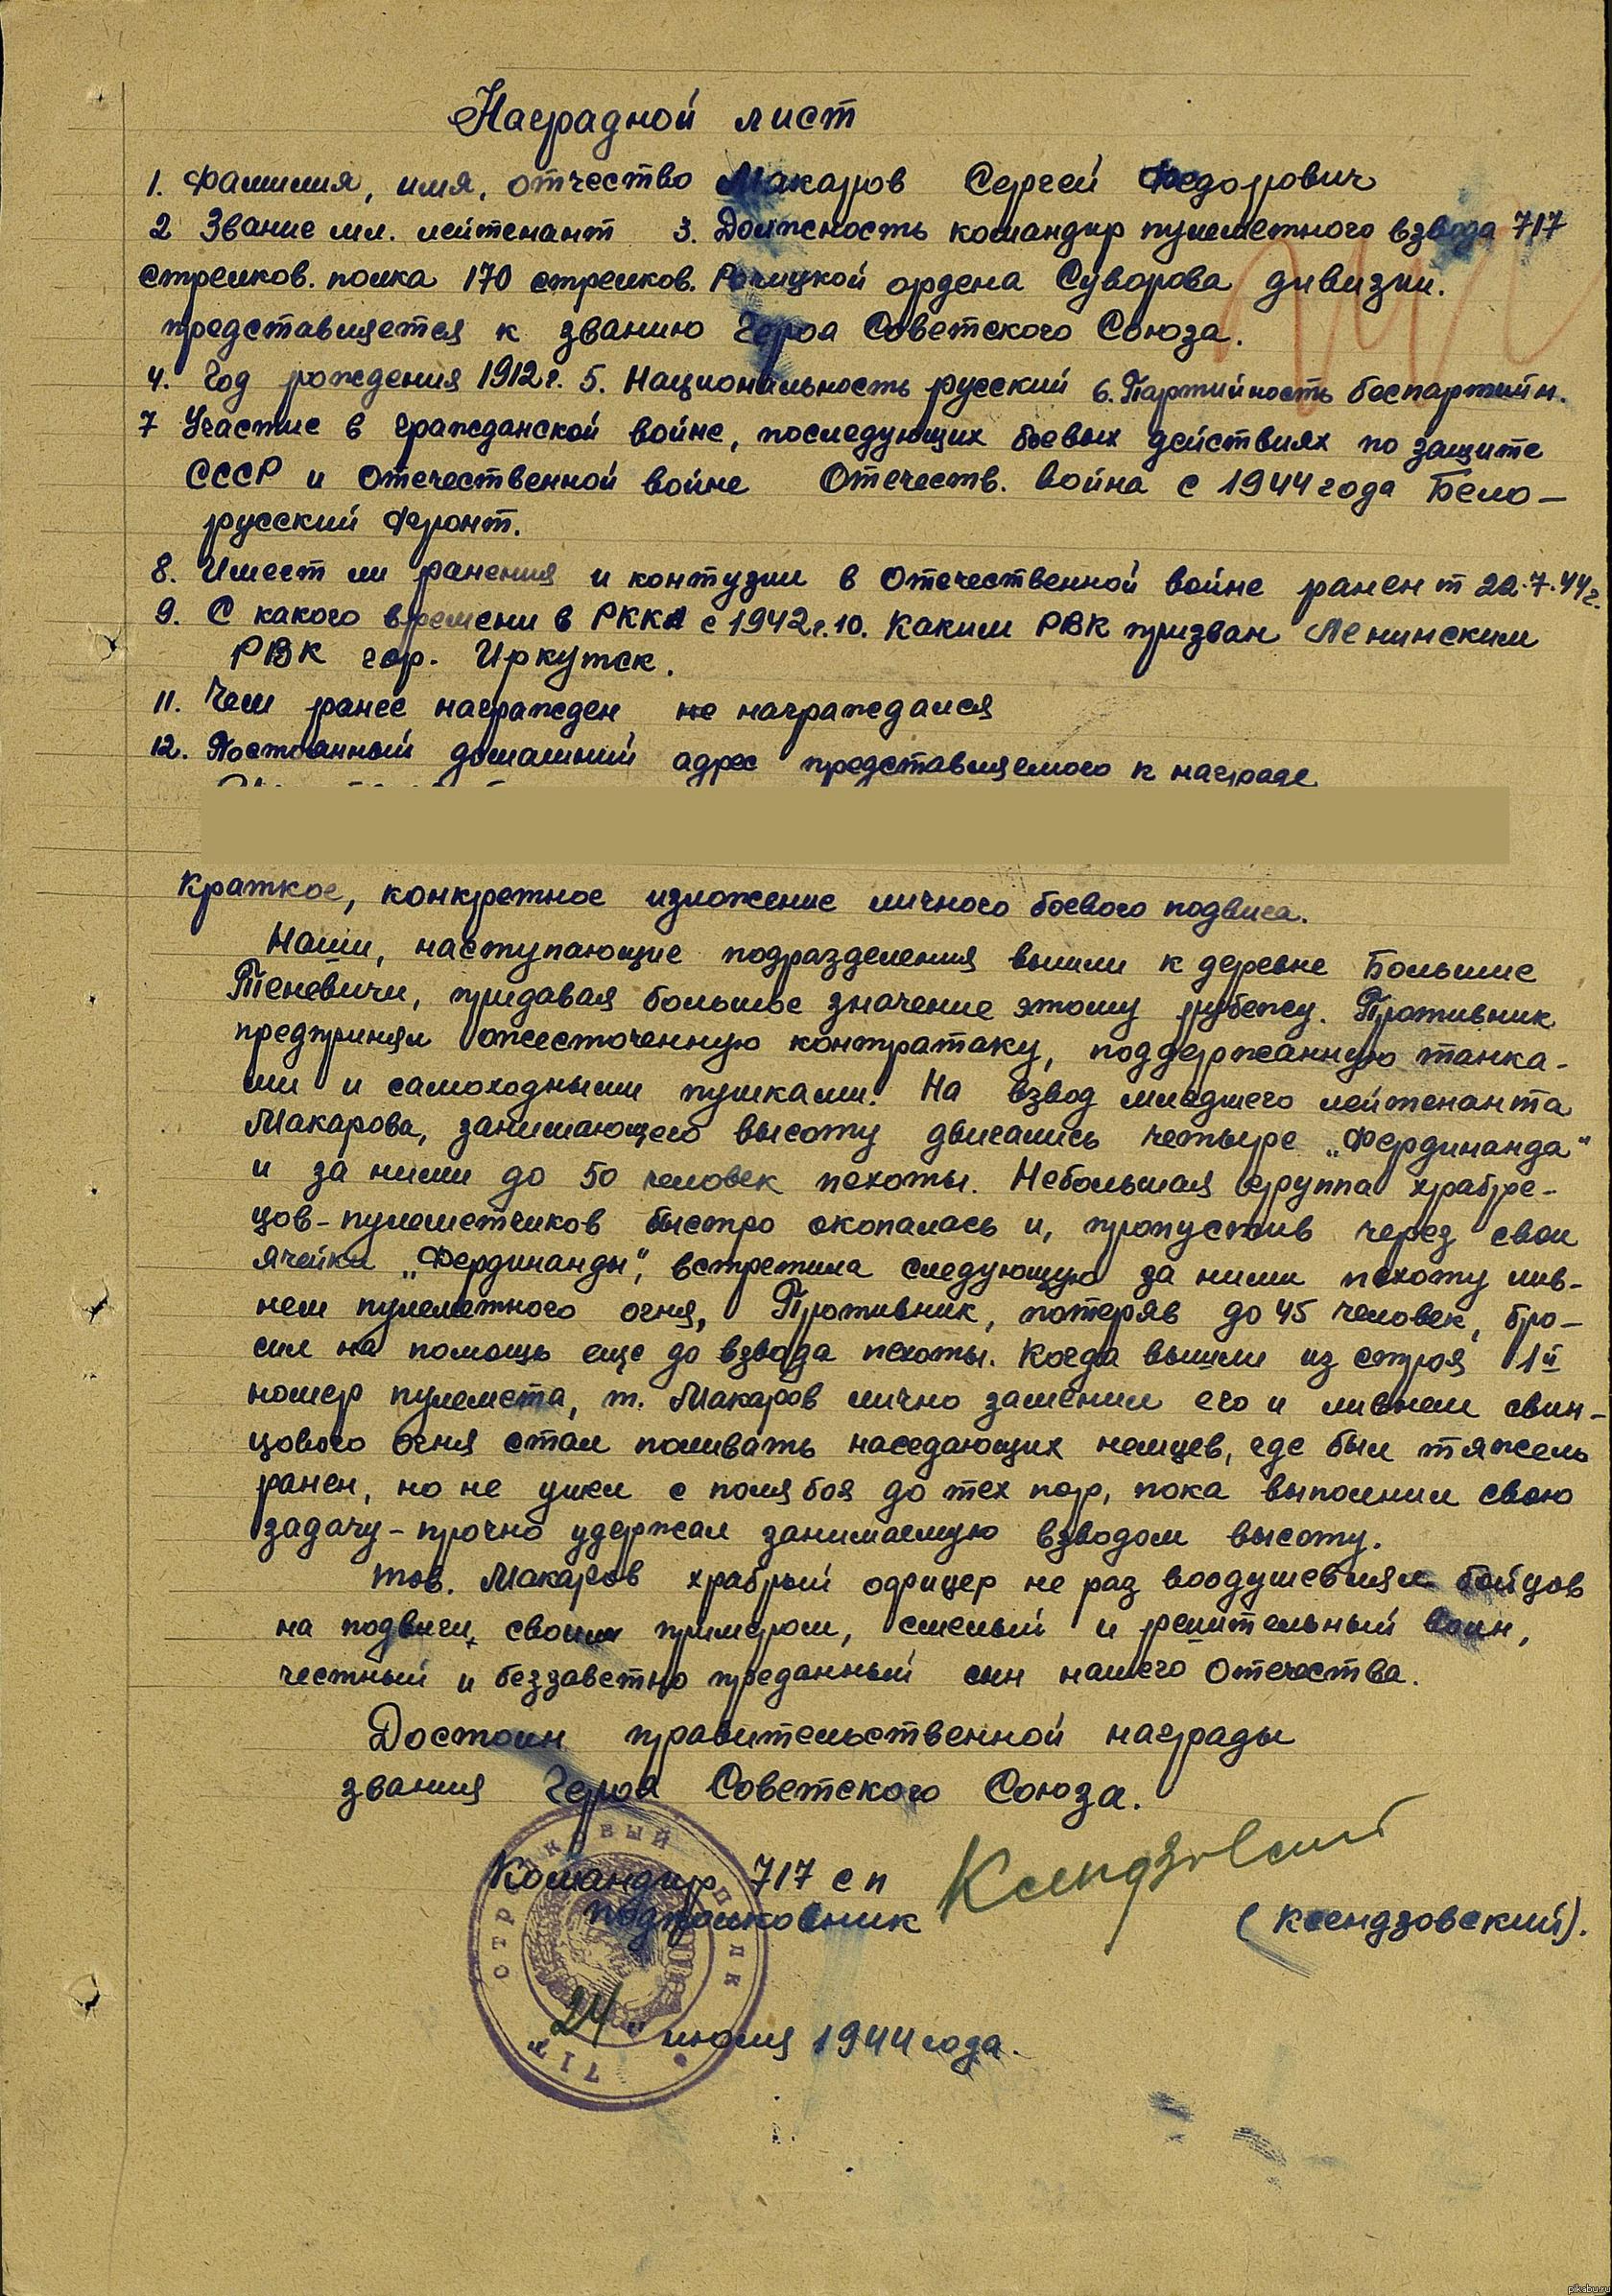 Наградной лист
1. Фамилия, имя, отчество Макаров Сергей Федорович
2 Звание мл. лейтенант 3. Должность командир пулеметного взвода 717
стрелков. полка 170 стрелков. Речицкой ордена Суворова дивизии.
представляется к званию Героя Советского Союза.
4. Год рождения 1912г. 5. Национальность русский 6. Партийность беспартийн.
7 Участие в гражданской войне, последующих боевых действиях по защите
СССР и отечественной войне Отечеств. война с 1944 года Бело-
русский фронт.
8. Имеет ли ранения и контузии в отечественной войне ранен т 22.7.44г.
9. С какого времени в РККА с 1942г. 10. Каким РВК призван Ленинским
РВК гор. Иркутск.
11. Чем ранее награжден не награждался
12. Постоянный домашний адрес представляемого к награде
Краткое, конкретное изложение личного боевого подвига.
Наши, наступающие подразделения вышли к деревне Большие
Теневичи, придавая большое значение этому рубежу. Противник
предпринял ожесточенную контратаку, поддержанную танка-
ми и самоходными пушками. На взвод младшего лейтенанта
Макарова, занимающего высоту двигались четыре „Фердинанда"
и за ними до 50 человек пехоты. Небольшая группа храбре-
цов-пулеметчиков быстро окопалась и, пропустив через свои
ячейки „Фердинанды", встретила следующую за ними пехоту лив-
нем пулеметного огня, Противник, потеряв до 45 человек, бро-
сил на помощь еще до взвода пехоты. Когда вышли из строя 1й
номер пулемета, т. Макаров лично заменил его и ливнем свин-
цового огня стал поливать наседающих немцев, где был тяжело
ранен, но не ушел с поля боя до тех пор, пока выполнил свою
задачу - прочно удержал занимаемую взводом высоту.
Тов. Макаров храбрый офицер не раз воодушевлял бойцов
на подвиги, своим примером, смелый и решительный воин,
честный и беззаветно преданный сын нашего Отечества.
Достоин правительственной награды
звания Героя Советского Союза.
Командир 717 сп
подполковник Ксендзовский (Ксендзовский).
"24" июля 1944 года.
СТРЕЛКОВЫЙ ПОЛК
717
pikabu.ru